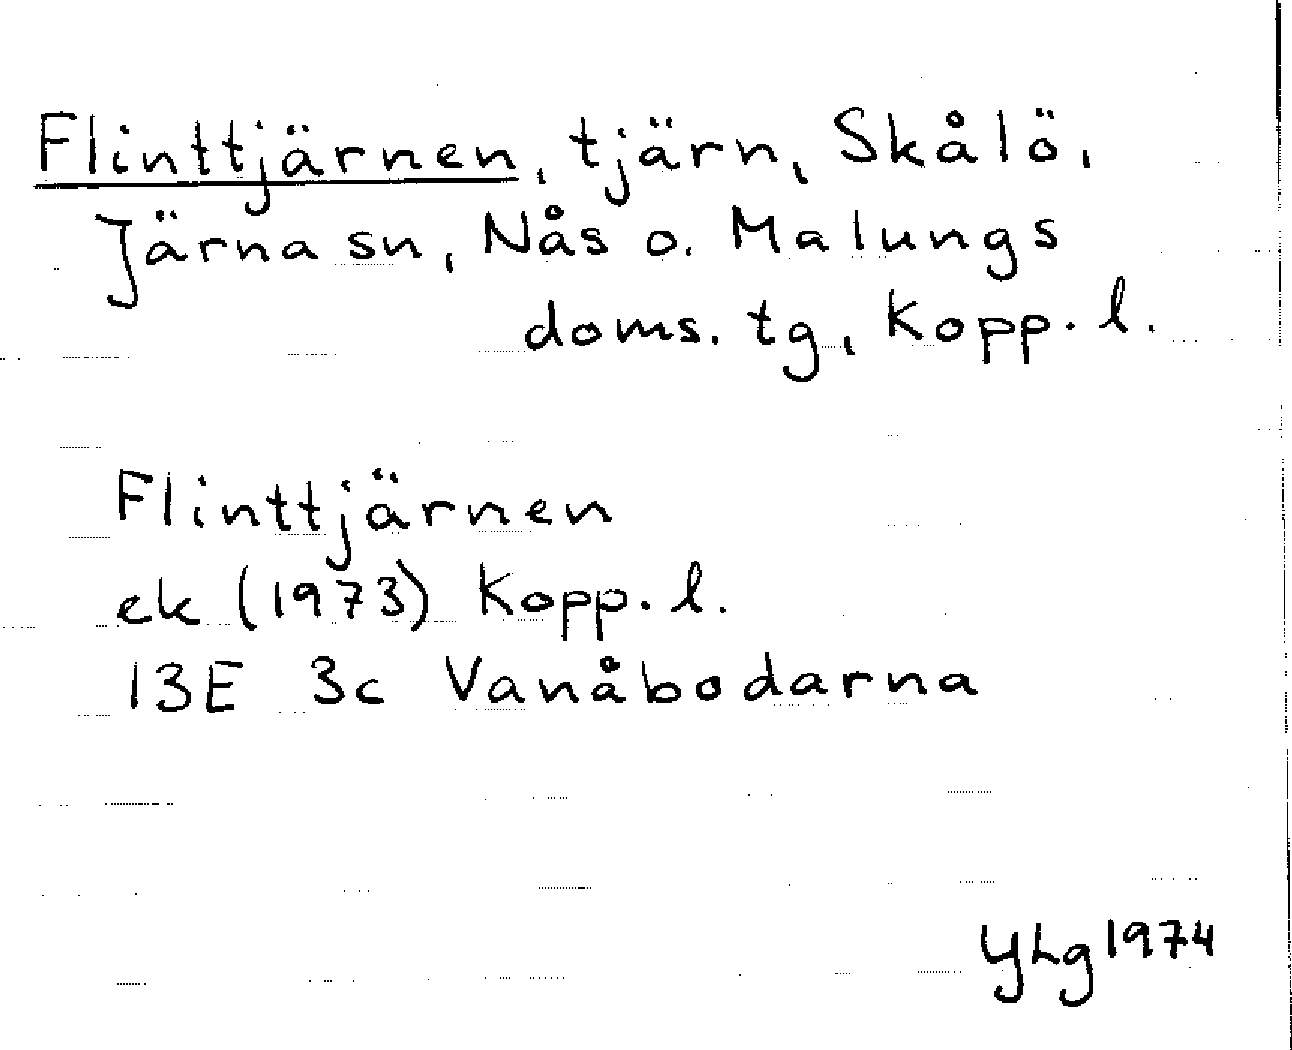 Flinttjärnen, tjärn, Skålö,
Järna sn, Nås o. Malungs
doms. tg, Kopp. l.
Flinttjärnen
ek (1973) Kopp. l.
13E 3c Vanåbodarna
YLg 1974